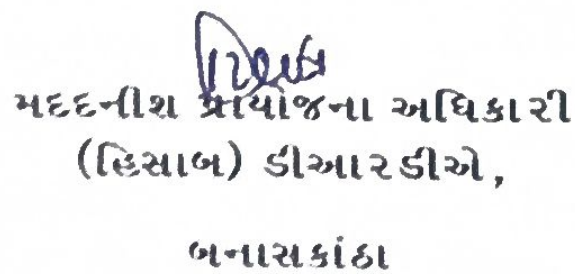 મદદનીશ પ્રાયોજના અધિકારી
(હિસાબ) ડીઆરડીએ,
બનાસકાંઠા